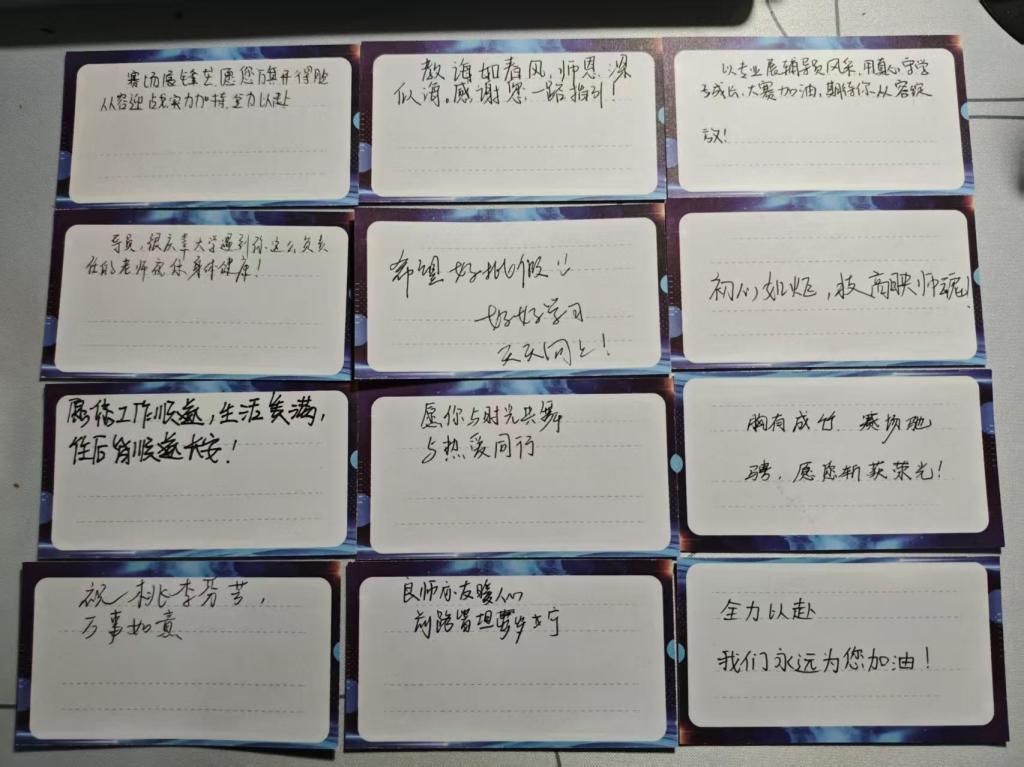 赛场展锋芒,愿您旗开得胜
从容迎战,实力加持,全力以赴
教诲如春风,师恩深
似海。感谢您一路指引!
以专业展辅导员风采,用真心守学
子成长,大赛加油,期待你从容绽
放!
导员,很庆幸大学遇到你这么负责
任的老师祝你身体健康!
希望好批假
好好学习
天天向上!
初心如炬,技高映师魂!
愿您工作顺遂,生活美满,
往后皆顺遂长安!
愿你与时光共舞
与热爱同行
胸有成竹 赛场驰
骋,愿您斩获荣光!
祝桃李芬芳,
万事如意
良师亦友暖人心
前路皆坦
全力以赴
我们永远为您加油!